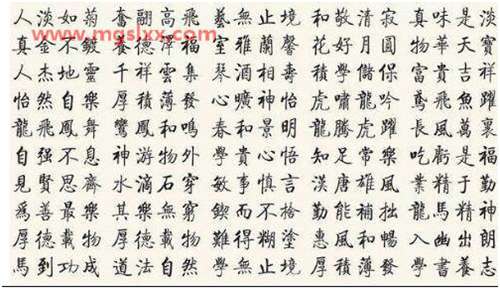 www.mgslxx.com
人淡如菊 奮翮高飛 藝無止境 和敬清寂 真味是淡
真金不鍍 德澤福 室雅蘭馨 花好月圓 物華天寶
人杰地靈 千祥雲集 琴酒相壽 積學儲保 富貴吉祥
怡然自樂 厚積薄發 心曠神怡 虎嘯龍吟 鳶飛魚躍
龍飛鳳舞 鸞鳳和鳴 春和景明 龍騰虎躍 長風萬裏
自强不息 神游物外 學貴心悟 知足常樂 吃虧是福
見賢思齊 水滴石穿 敏事慎言 漢唐雄風 業精于勤
爲善最樂 其樂無窮 鍥而不捨 勤能補拙 龍馬精神
厚德載物 厚德載物 難得糊塗 惠風和暢 入幽出朗
馬到功成 道法自然 學無止境 厚積薄發 學書養志